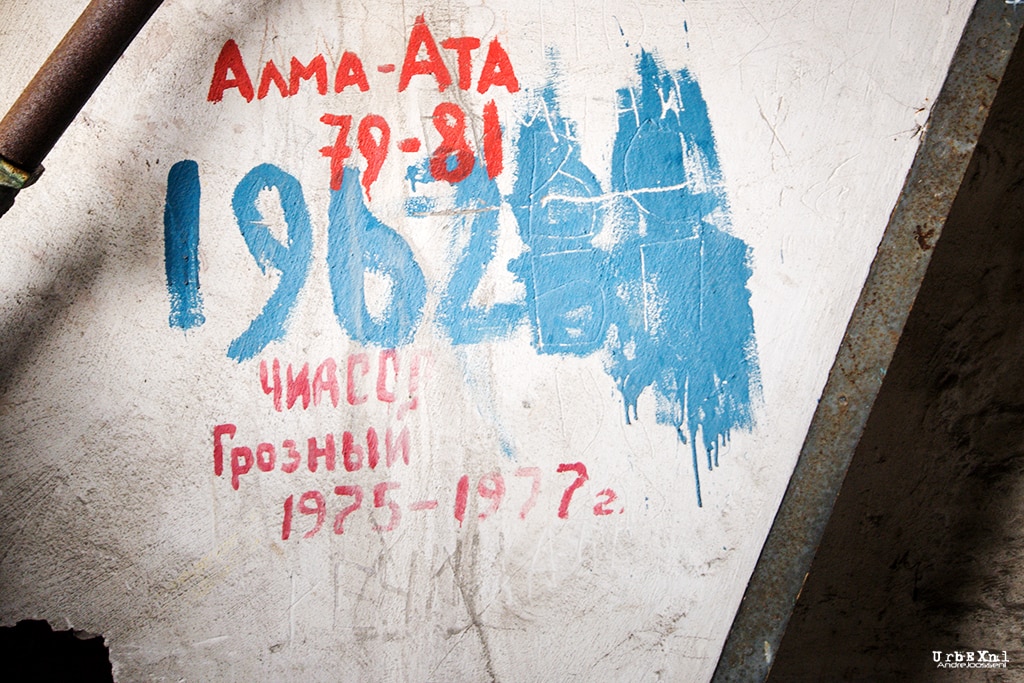 Алма-Ата
79-81
1962
ЧИАССР
Грозный
1975-1977г.
UrbEXnl
AndreJoosseni